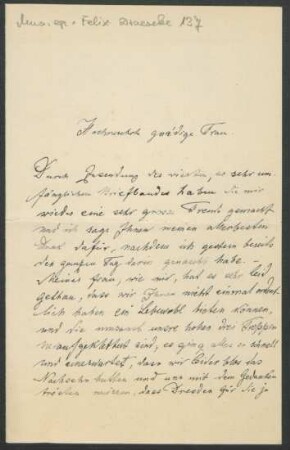 Mus. ep. Felix Draeseke 137
Hochverehrte gnädige Frau.
Durch Zusendung des vierten, so sehr um-
fänglichen Briefbandes haben Sie mir
wieder eine sehr grosse Freude gemacht
und ich sage Ihnen meinen allerbesten
Dank dafür, nachdem ich gestern bereits
den ganzen Tag darin genascht habe. –
Meiner Frau, wie mir, hat es sehr leid
gethan, dass wir Ihnen nicht einmal ordent-
lich haben ein Lebewohl bieten können,
und Sie umsonst unsre hohen drei Treppen
heraufgeklettert sind, es ging alles so schnell
und unerwartet, dass wir leider blos das
Nachsehn hatten und uns mit dem Gedanken
trösten müssen, dass Dresden für Sie ja